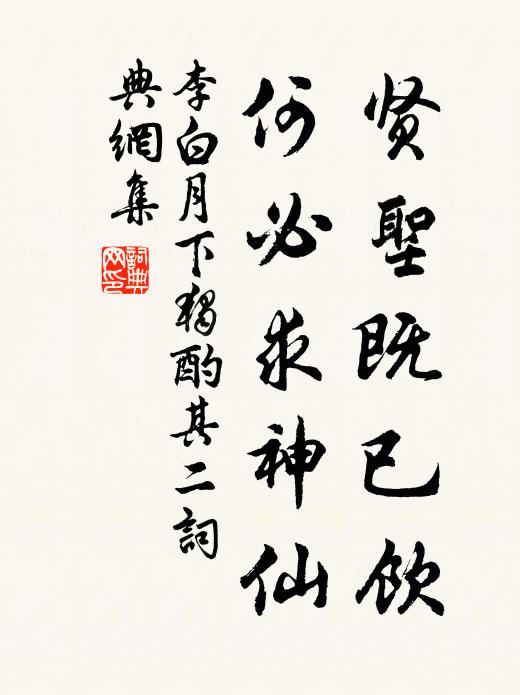 贤聖既已飲
何必求神仙
李白月下獨酌其二詞
典網集
詞典
网印